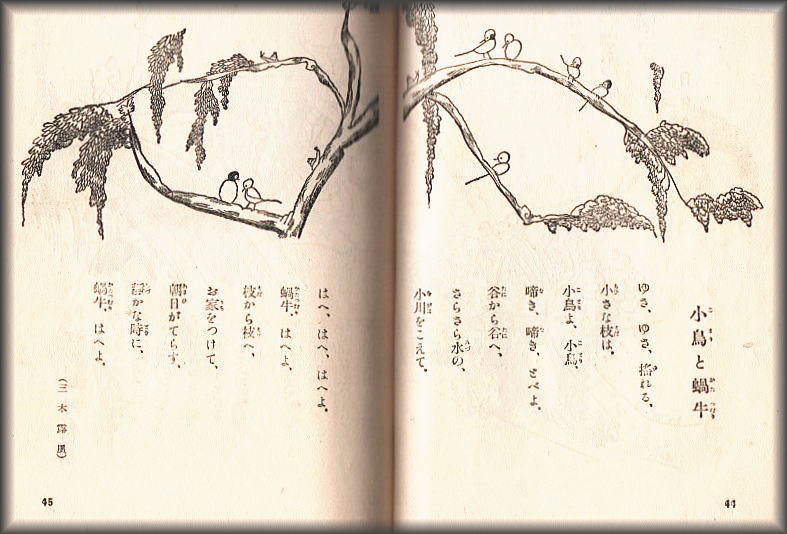 小鳥と蝸牛
ゆさ、ゆさ、搖れる、
小さな枝は。
小鳥よ、小鳥、
啼き、啼き、とべよ、
谷から谷へ、
さらさら水の、
小川をこえて。
44
はへ、はへ、はへよ、
蝸牛、はへよ、
枝から枝へ、
お家をつけて、
朝日がてらす、
靜かな時に、
蝸牛、はへよ。
(三木露風)
45